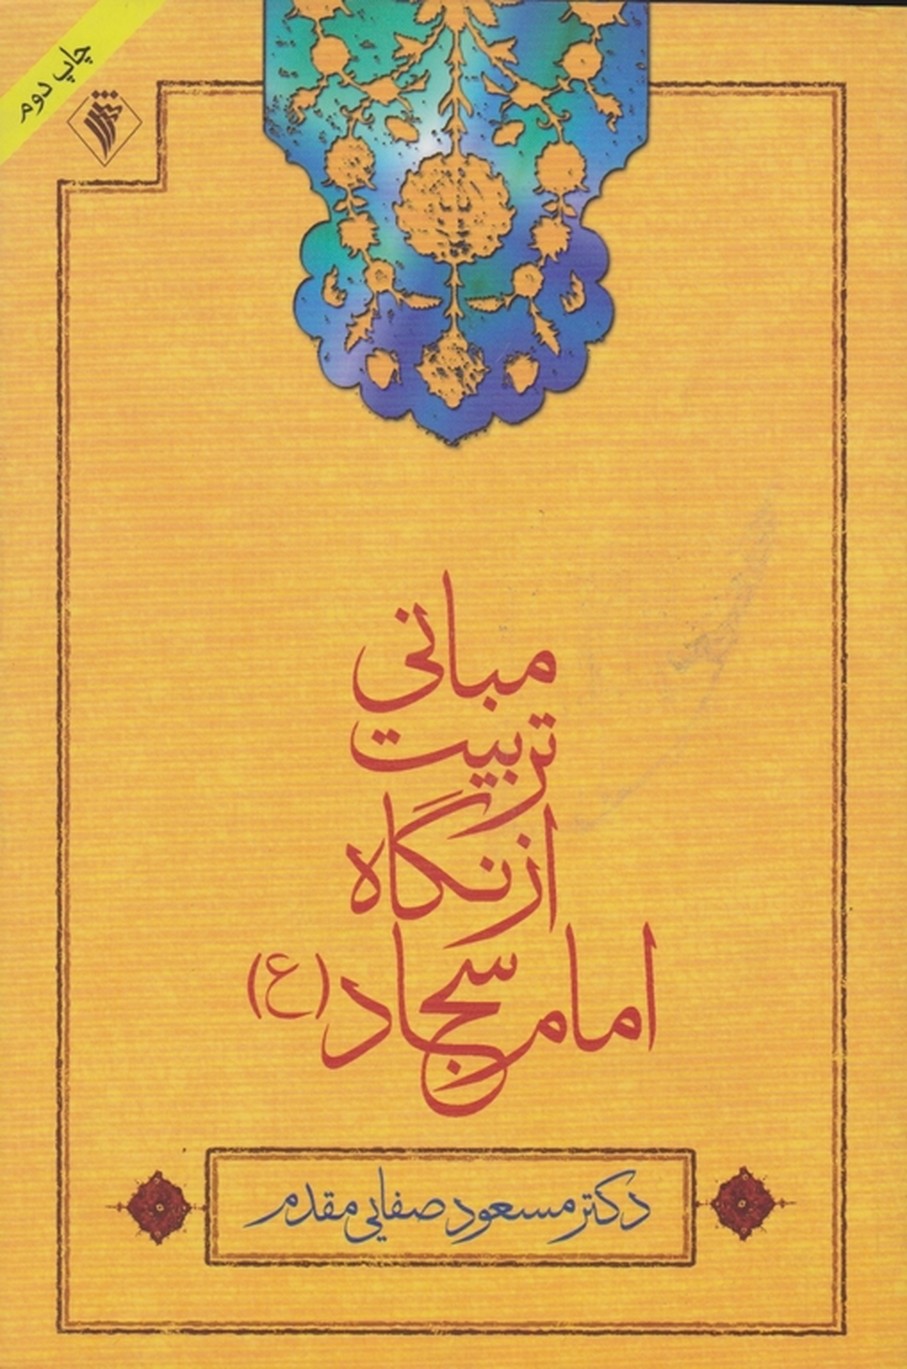 چاپ دوم
مبانی
تربیت
از نگاه
امام سجاد (ع)
دکتر مسعود صفایی مقدم